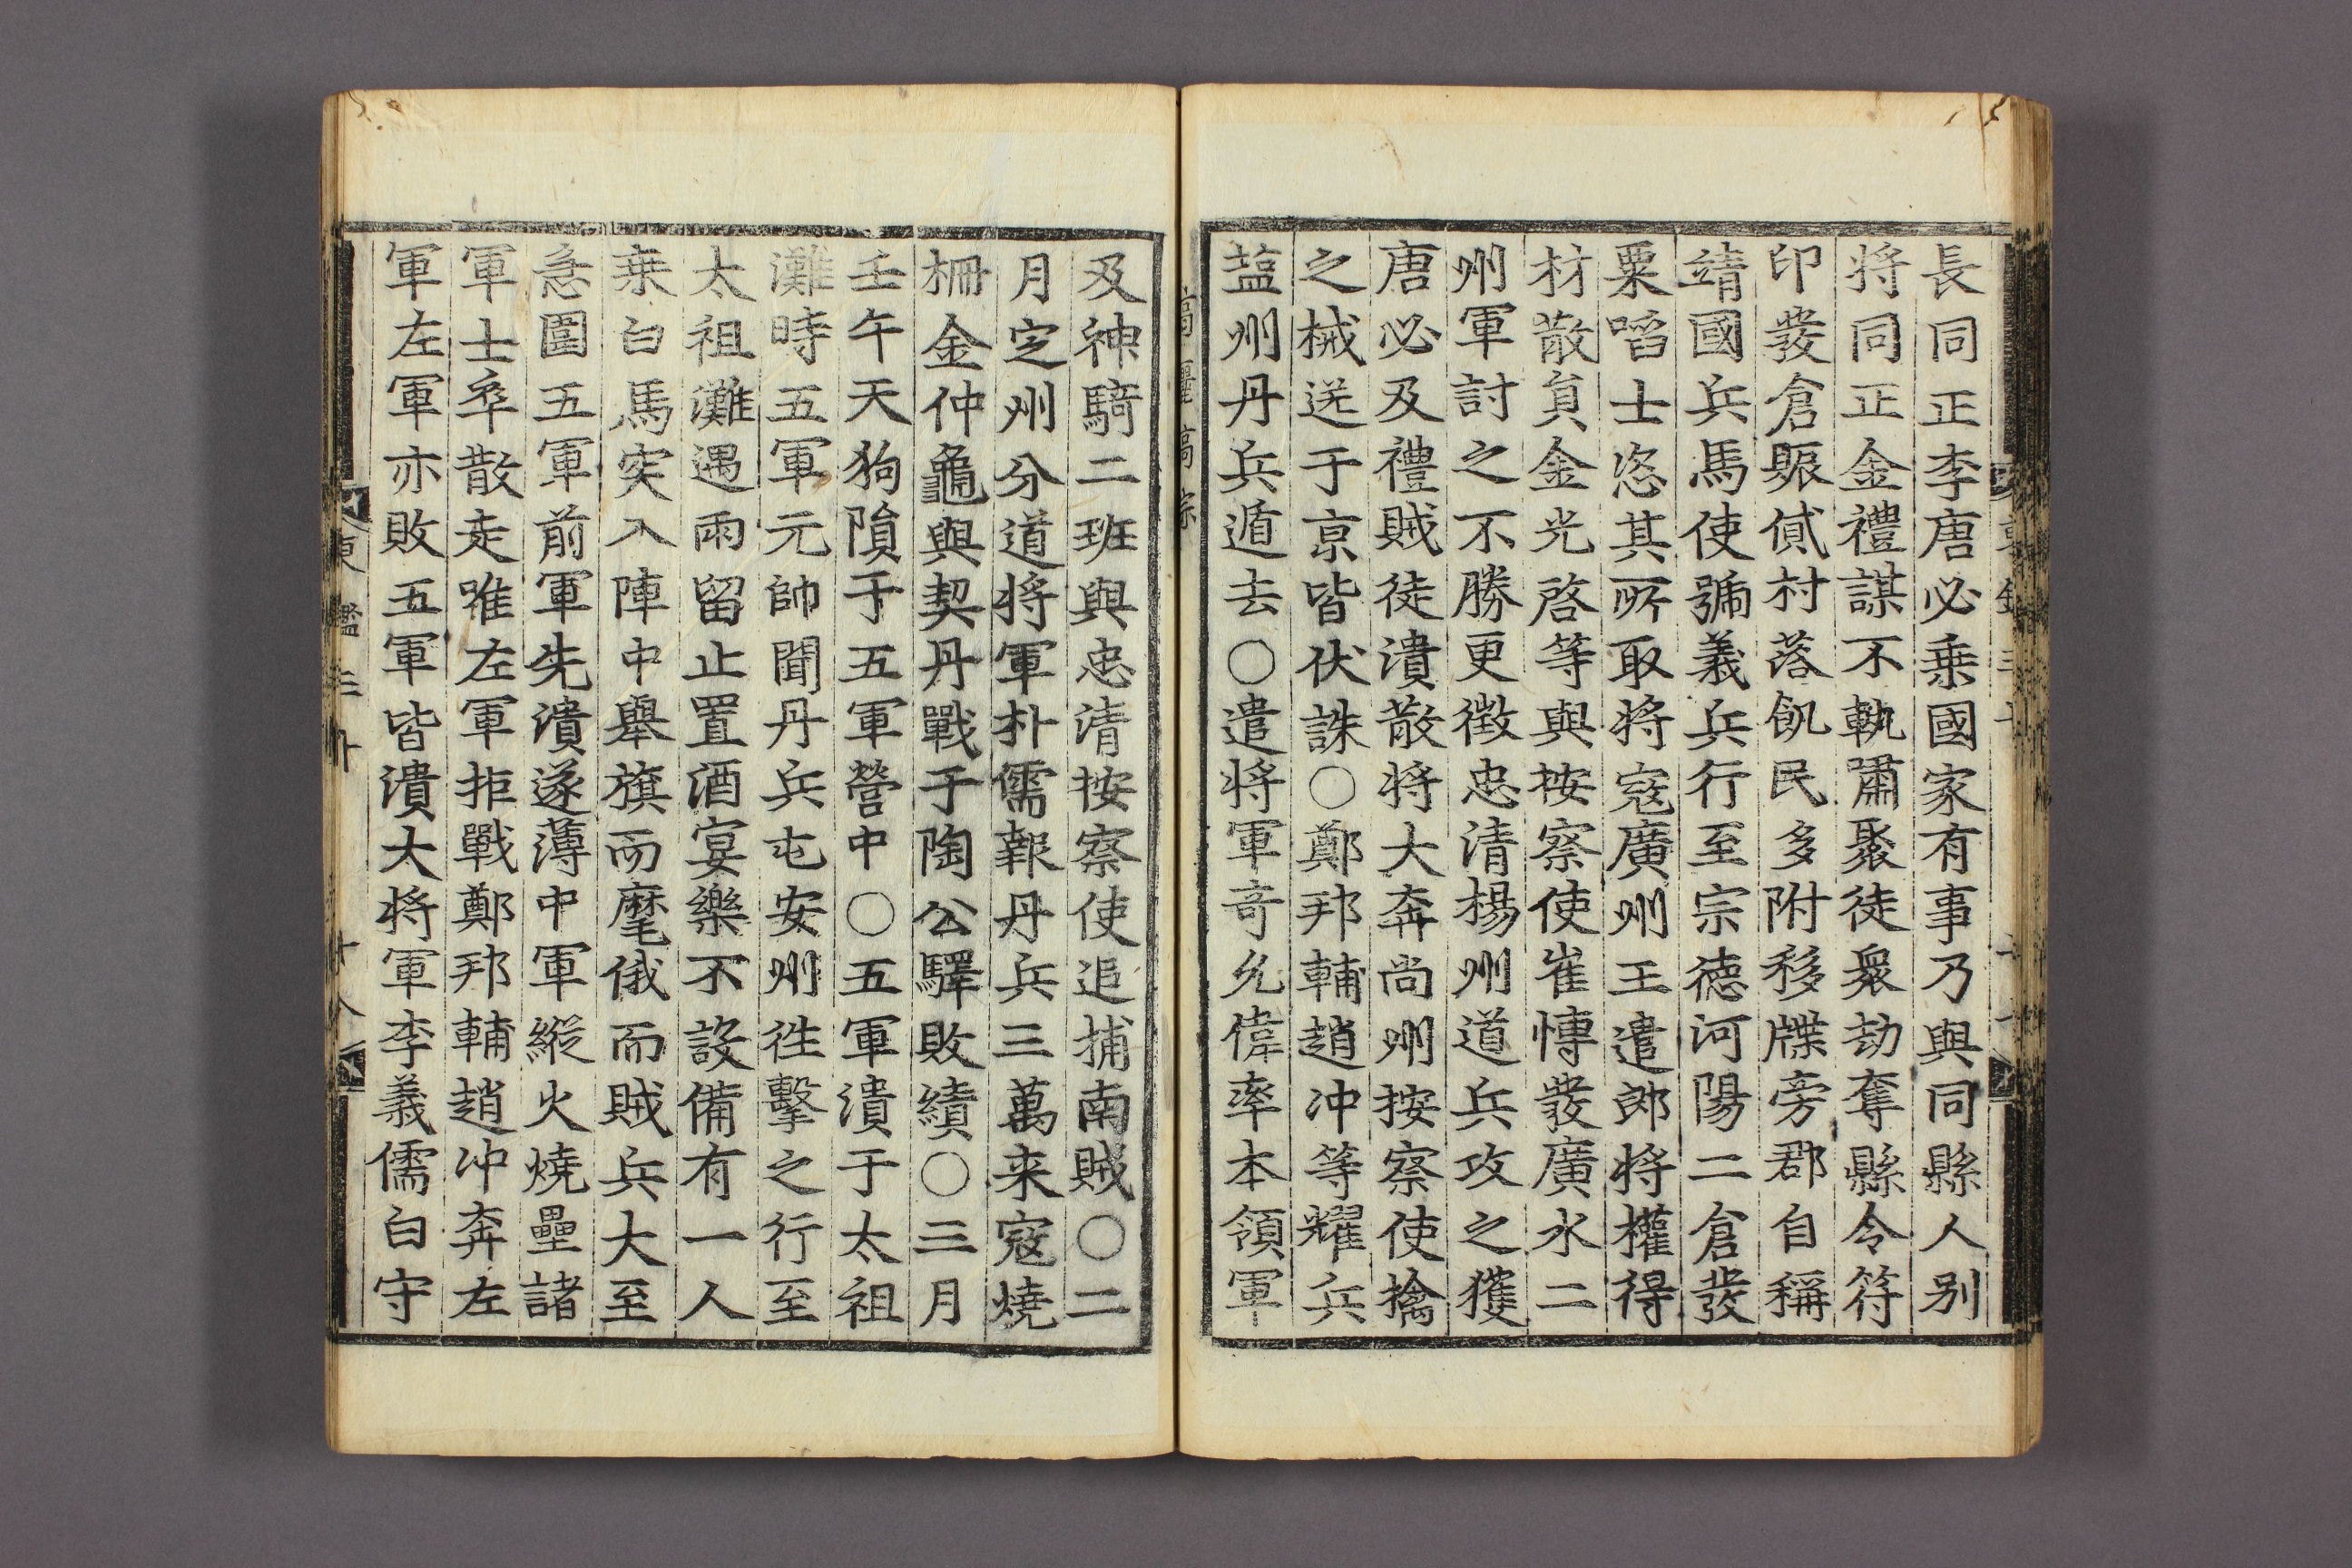 長同正李唐必乗國家有事乃與同縣人別
将同正金禮謀不軌嘯聚徒衆劫奪縣令符
印發倉賑貸村落飢民多附移牒旁郡自稱
靖國兵馬使號義兵行至宗德河陽二倉發
粟啗士恣其所取将寇廣州王遣郎将權得
材散負金光啓等與按察使崔慱發廣水二
州軍討之不勝更徴忠清楊州道兵攻之獲
唐必及禮賊徒潰散将大奔尚州按察使擒
之械送于京皆伏誅〇鄭邦輔趙冲等耀兵
塩州丹兵遁去〇遣将軍奇允偉率本領軍
及神騎二班與忠清按察使追捕南賊〇二
月定州分道将軍朴儒報丹兵三萬来寇燒
柵金仲龜與契丹戰于陶公驛敗績〇三月
壬午天狗隕于五軍營中〇五軍潰于太祖
灘時五軍元帥聞丹兵屯安州徃擊之行至
太祖灘遇雨留止置酒宴樂不設備有一人
乗白馬突入陣中舉旗而麾俄而賊兵大至
急圍五軍前軍先潰遂薄中軍縱火燒壘諸
軍士卒散走唯左軍拒戰鄭邦輔趙冲奔左
軍左軍亦敗五軍皆潰大将軍李義儒白守